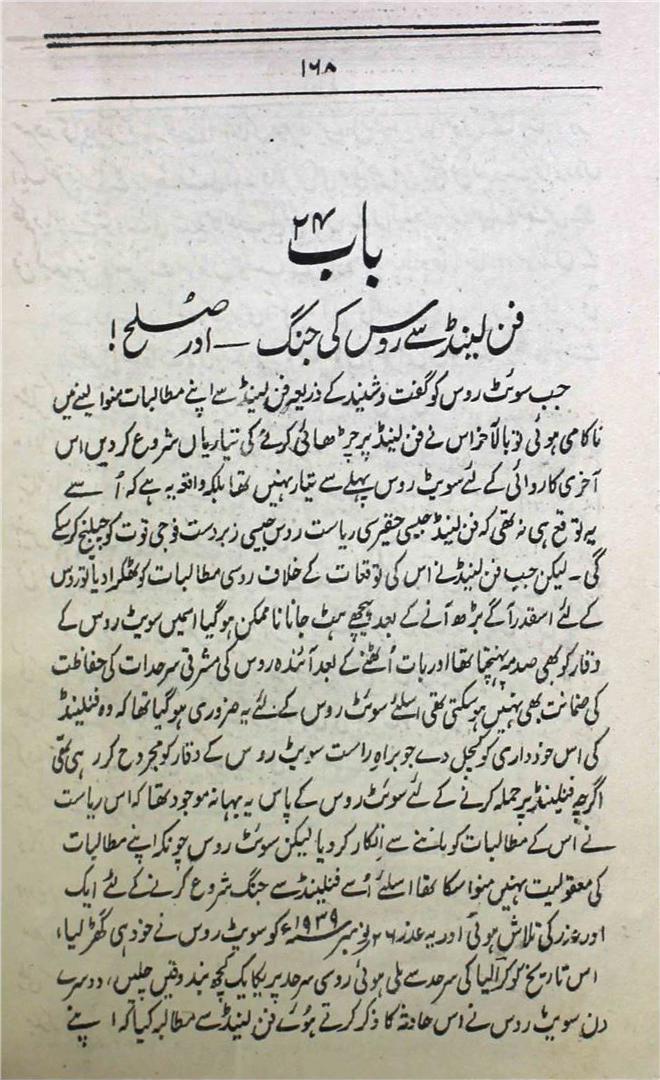 ۱۶۸
باب ۲۴
فن لینڈ سے روس کی جنگ — اور صلح!
جب سوئٹ روس کو گفت و شنید کے ذریعہ فن لینڈ سے اپنے مطالبات منوا لینے میں
ناکامی ہوئی تو بالآخر اس نے فن لینڈ پر چڑھائی کرنے کی تیاریاں شروع کر دیں اس
آخری کاروائی کے لئے سویٹ روس پہلے سے تیار نہیں تھا بلکہ واقعہ یہ ہے کہ اُسے
یہ توقع ہی نہ تھی کہ فن لینڈ جیسی حقیر سی ریاست روس جیسی زبردست فوجی قوت کو چیلنج کر سکے
گی ۔ لیکن جب فن لینڈ نے اس کی توقعات کے خلاف روسی مطالبات کو ٹھکرا دیا تو روس
کے لئے اسقدر آگے بڑھ آنے کے بعد پیچھے ہٹ جانا نا ممکن ہو گیا اسمیں سویٹ روس کے
وقار کو بھی صدمہ پہنچتا تھا اور بات اُلٹنے کے بعد آئندہ روس کی مشرقی سرحدات کی حفاظت
کی ضمانت بھی نہیں ہو سکتی تھی اسلئے سوئٹ روس کے لئے یہ ضروری ہو گیا تھا کہ وہ فنلینڈ
کی اس خود داری کو کچل دے جو براہِ راست سویٹ روس کے وقار کو مجروح کر رہی تھی
اگرچہ فنلینڈ پر حملہ کرنے کے لئے سوئٹ روس کے پاس یہ بہانہ موجود تھا کہ اس ریاست
نے اس کے مطالبات کو ماننے سے انکار کر دیا لیکن سوئٹ روس چونکہ اپنے مطالبات
کی معقولیت نہیں منوا سکا تھا اسلئے اُسے فنلینڈ سے جنگ شروع کرنے کے لئے ایک
اور عذر کی تلاش ہوئی اور یہ عذر ۲۶ نومبر ۱۹۳۹ء کو سویٹ روس نے خود ہی گھڑ لیا،
اس تاریخ کو کرآلیا کی سرحد سے ملی ہوئی روسی سرحد پر یکایک کچھ بندوقیں چلیں، دوسرے
دن سویٹ روس نے اس حادثہ کا ذکر کرتے ہوئے فن لینڈ سے مطالبہ کیا کہ اپنے